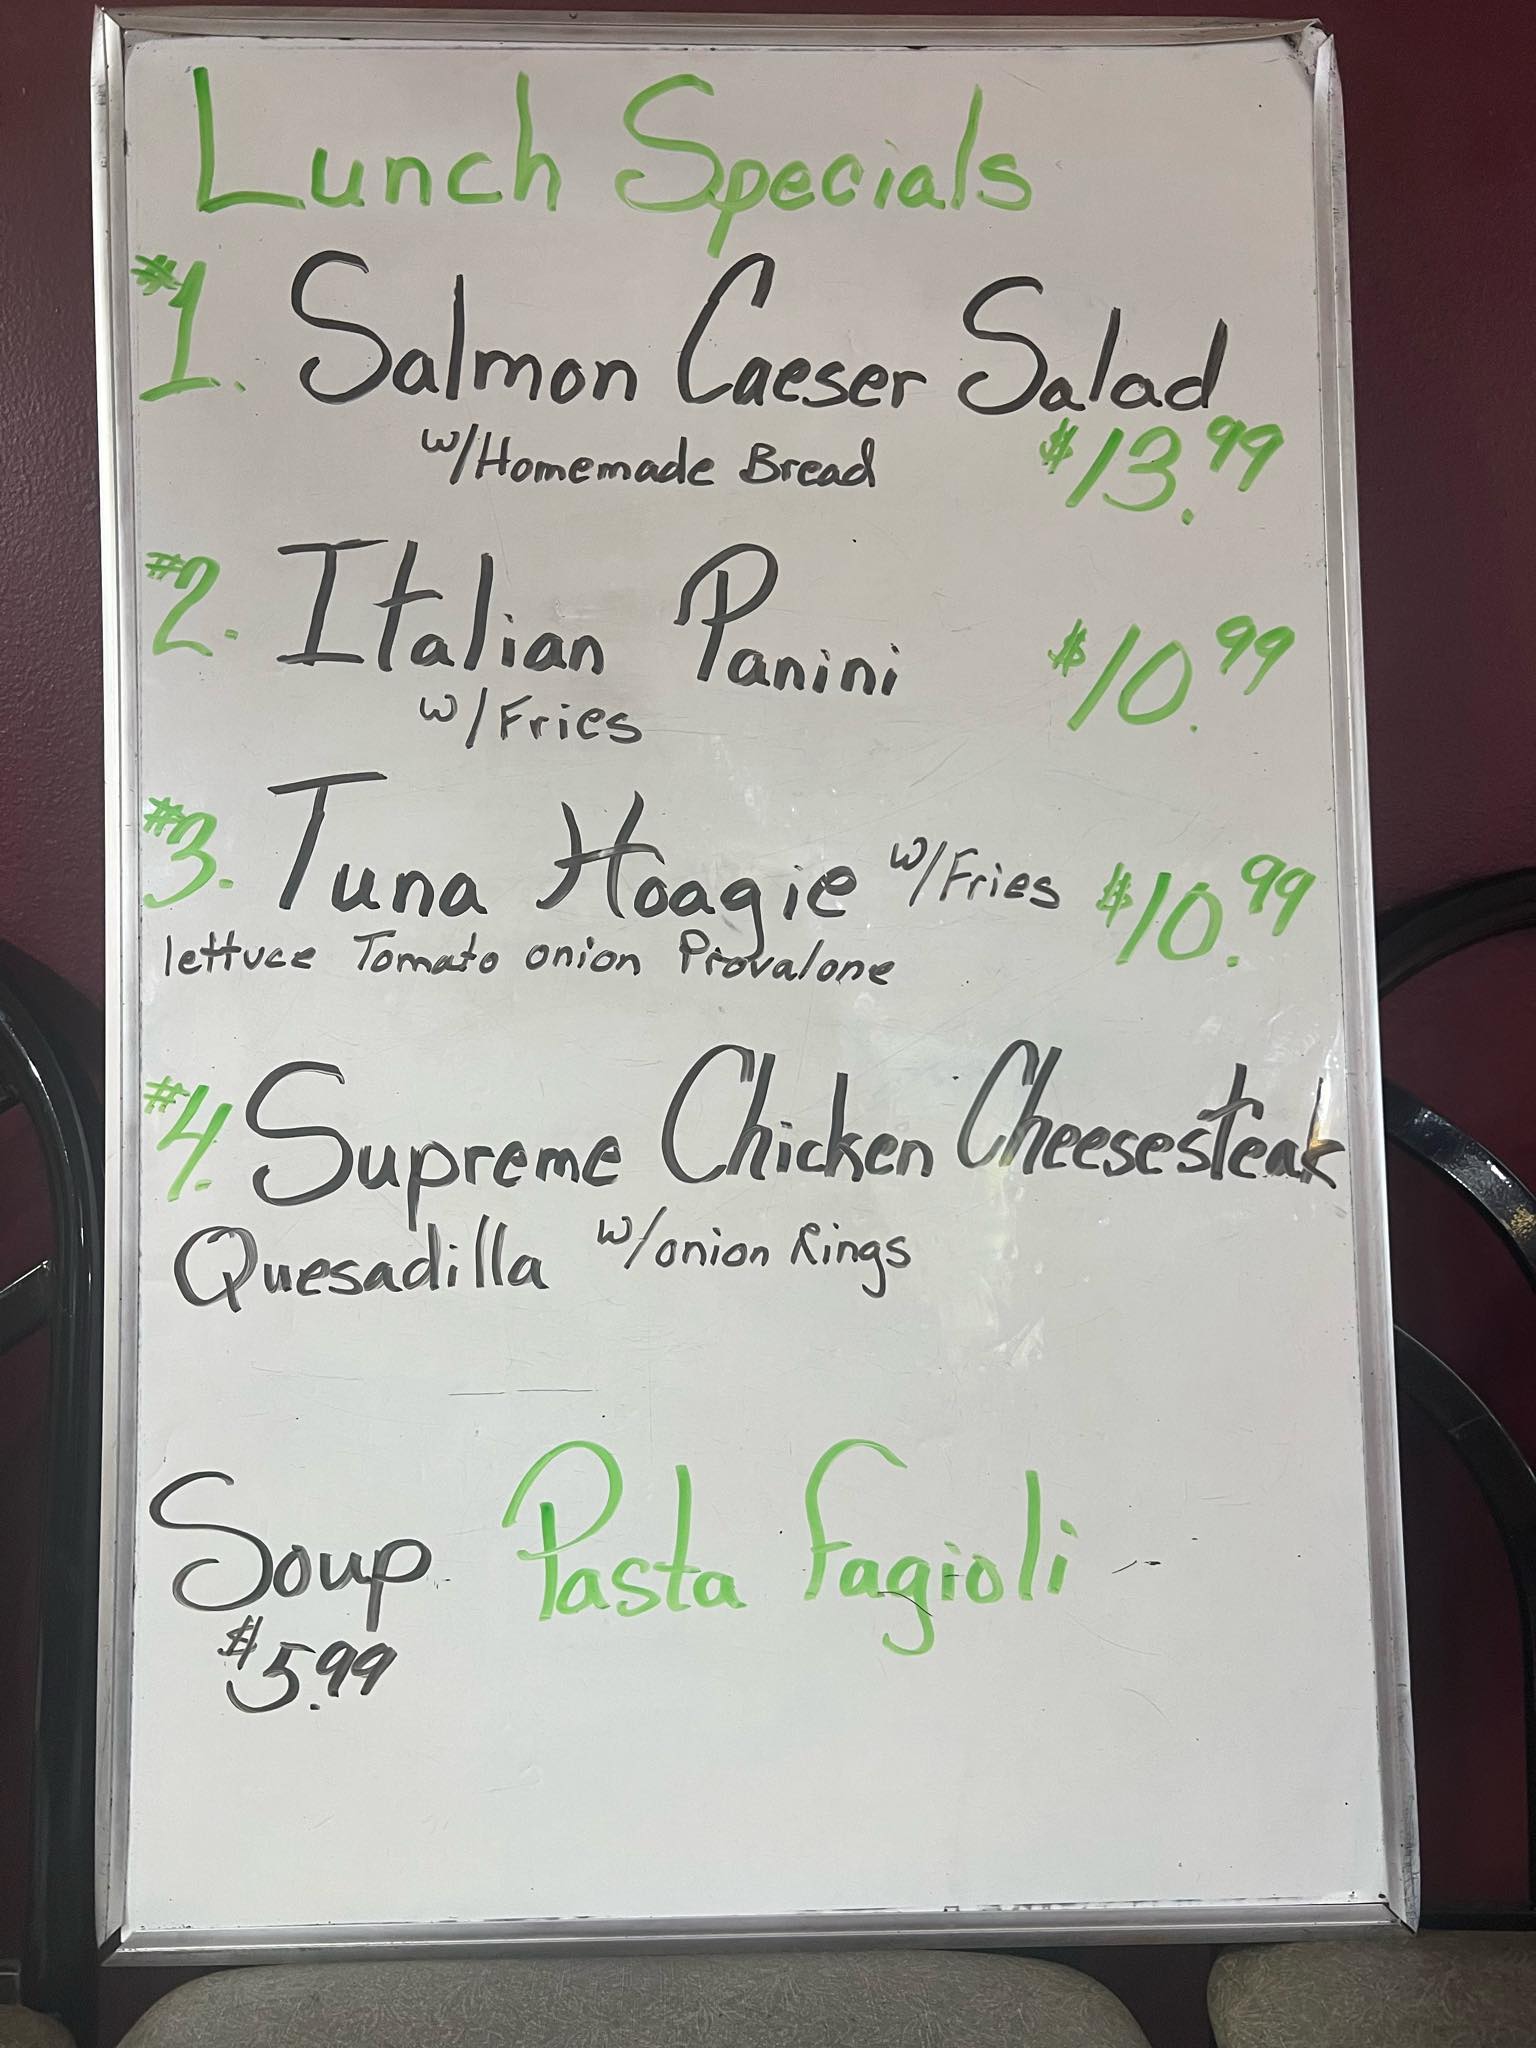 Lunch Specials
#1. Salmon Caeser Salad
w/Homemade Bread $13.99
#2. Italian Panini $10.99
w/Fries
#3. Tuna Hoagie w/Fries $10.99
lettuce Tomato onion Provalone
#4. Supreme Chicken Cheesesteak
Quesadilla w/onion Rings
Soup Pasta Fagioli
$5.99